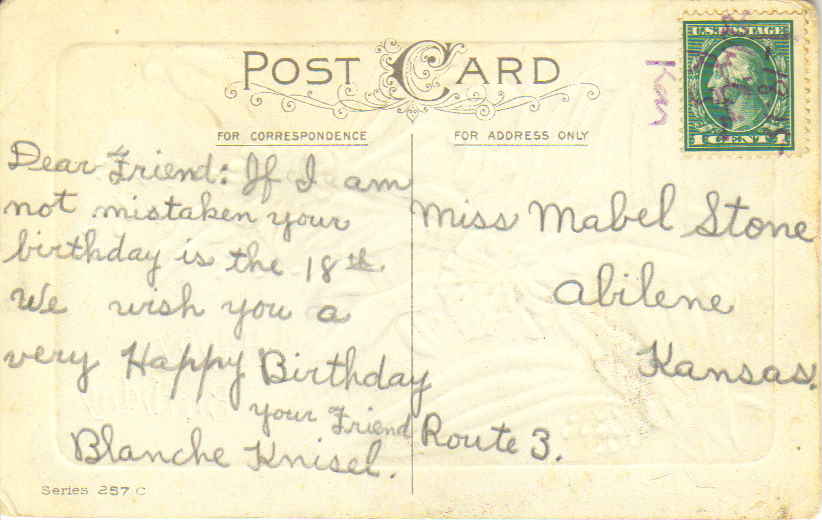 POST CARD
FOR CORRESPONDENCE
FOR ADDRESS ONLY
U.S. POSTAGE
1 CENT 1
Kan
Dear Friend: If I am
not mistaken your
birthday is the 18th.
We wish you a
very Happy Birthday
your Friend
Blanche Knisel.
Miss Mabel Stone
Abilene
Kansas.
Route 3.
Series 257 C